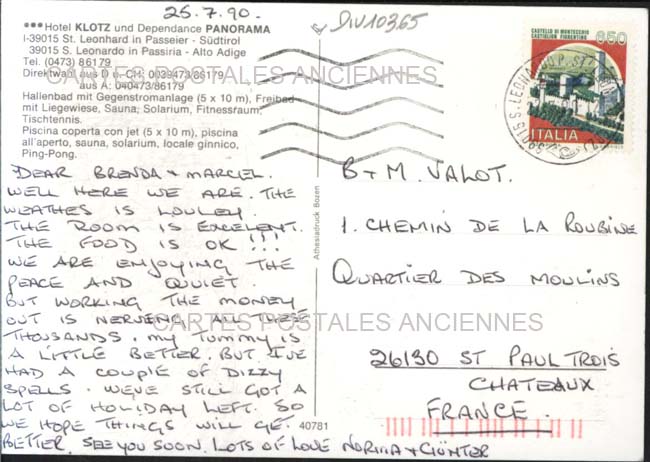 25.7.90.
DIV10365
***Hotel KLOTZ und Dependance PANORAMA
I-39015 St. Leonhard in Passeier - Südtirol
39015 S. Leonardo in Passiria - Alto Adige
Tel. (0473) 86179
Direktwahl aus D n-CH: 0039473/86179
aus A: 040473/86179
CARTES POSTALES ANCIENNES
Hallenbad mit Gegenstromanlage (5 x 10 m), Freibad
mit Liegewiese, Sauna, Solarium, Fitnessraum,
Tischtennis.
Piscina coperta con jet (5 x 10 m), piscina
all'aperto, sauna, solarium, locale ginnico,
Ping-Pong.
DEAR BRENDA + MARCEL.
WELL HERE WE ARE. THE
WEATHES IS LOULEY.
THE ROOM IS EXCELENT.
THE FOOD IS OK!!!
WE ARE ENJOYING THE
PEACE AND QUIET.
BUT WORKING THE MONEY
OUT IS NERVENG, ALL THESE
THOUSANDS. MY TUMMY IS
A LITTLE BETTER. BUT I'VE
HAD A COUPLE OF DIZZY
SPELLS. WEVE STILL GOT A
LOT OF HOLIDAY LEFT. SO
WE HOPE THINGS WILL GET
BETTER. SEE YOU SOON. LOTS OF LOVE NORMA + GÜNTER
Athesiadruck Bozen
40781
CASTELLO DI MONTECCHIO
CASTIGLION FIORENTINO
650
ITALIA
39015 S. LEONARDO P. - ST.
B + M. VALOT.
1. CHEMIN DE LA ROUBINE
QUARTIER DES MOULINS
CARTES POSTALES ANCIENNES
26130 ST PAUL TROIS
CHATEAUX
FRANCE.